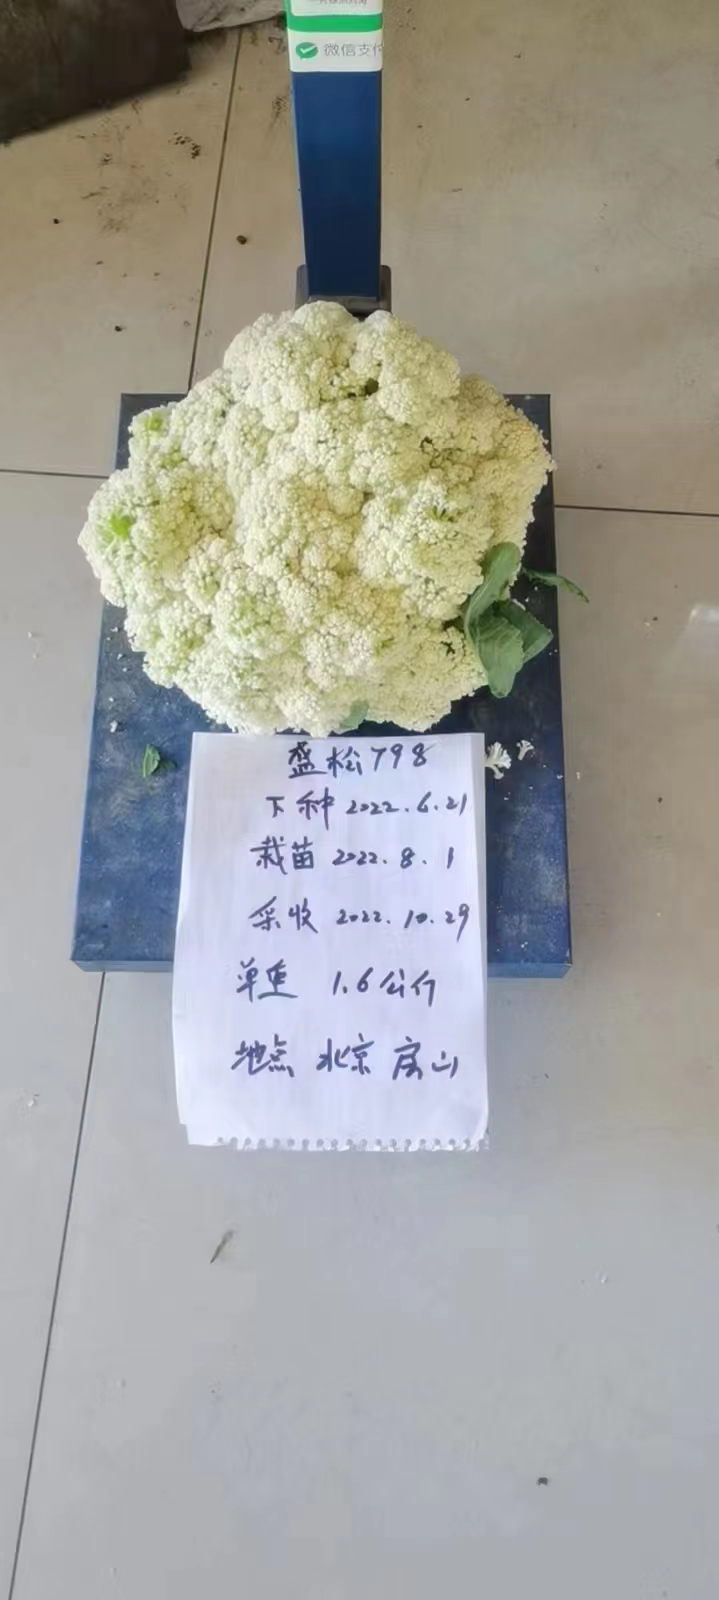 微信支付
盛松798
下种 2022.6.21
栽苗 2022.8.1
采收 2022.10.29
单重 1.6公斤
地点 北京 房山